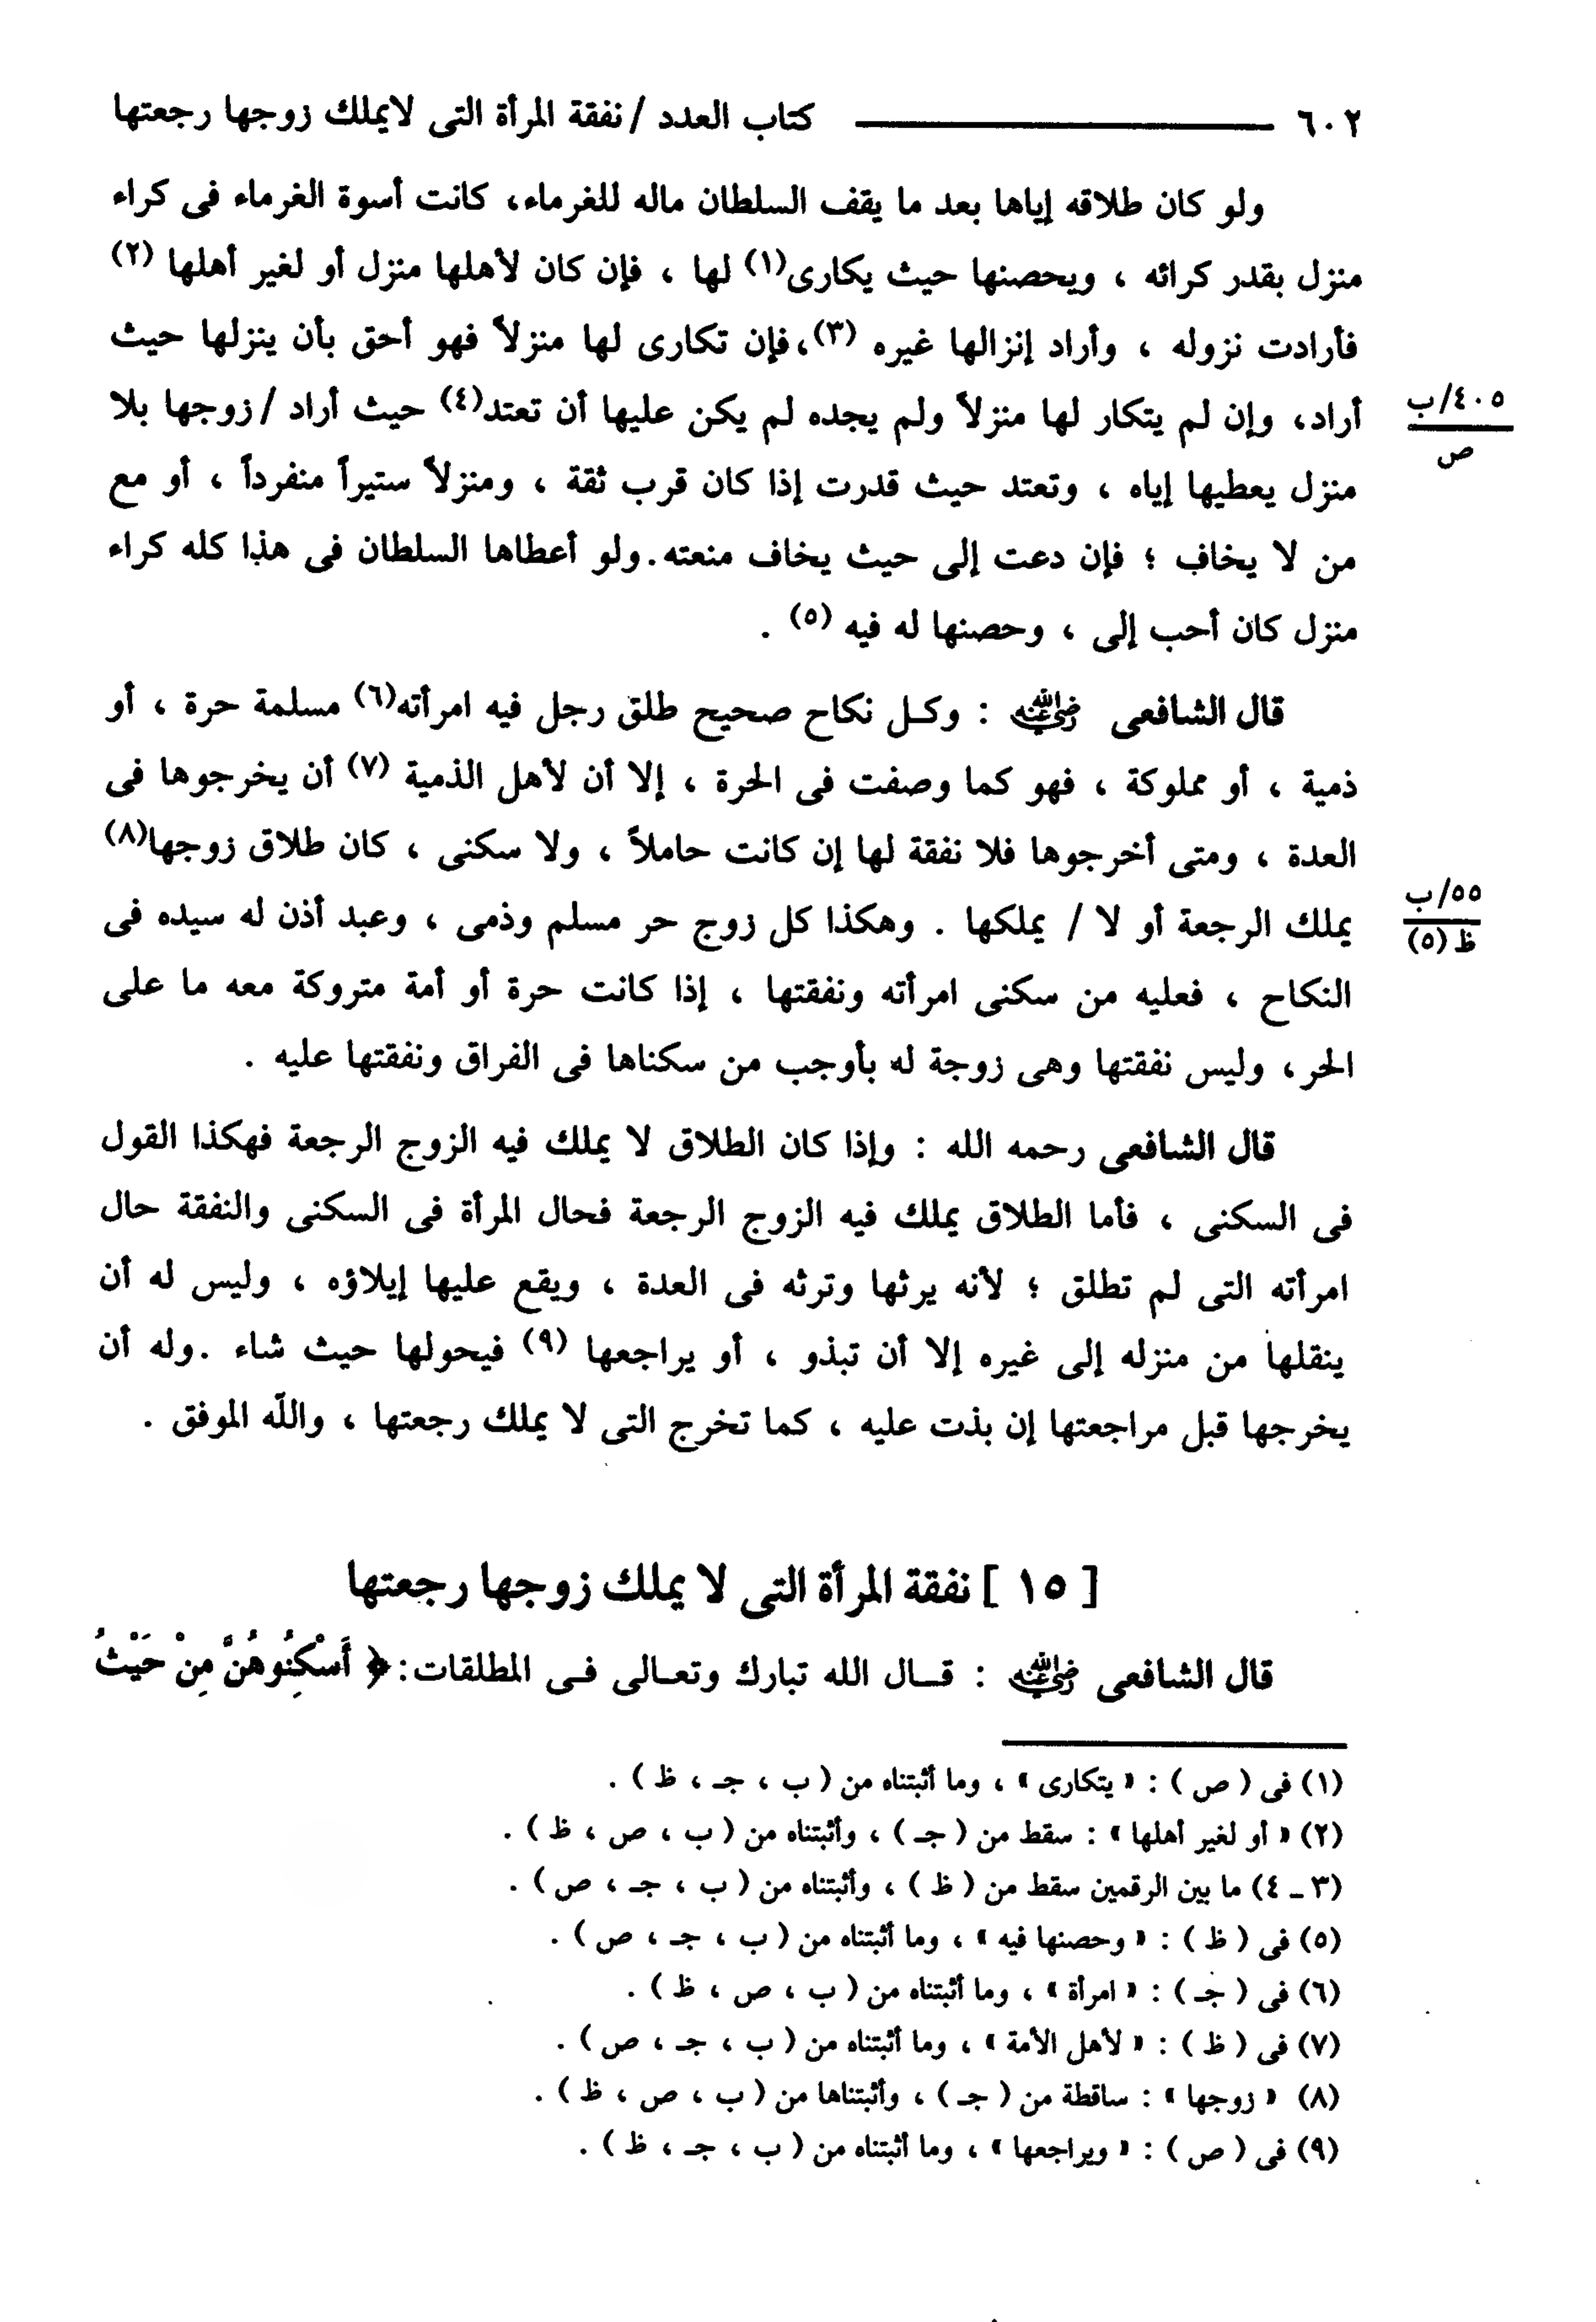 ٦٠٢ كتاب العدد / نفقة المرأة التى لايملك زوجها رجعتها
ولو كان طلاقه إياها بعد ما يقف السلطان ماله للغرماء، كانت أسوة الغرماء فى كراء
منزل بقدر كرائه ، ويحصنها حيث يكارى(١) لها ، فإن كان لأهلها منزل أو لغير أهلها (٢)
فأرادت نزوله ، وأراد إنزالها غيره (٣)،فإن تكارى لها منزلاً فهو أحق بأن ينزلها حيث
أراد، وإن لم يتكار لها منزلاً ولم يجده لم يكن عليها أن تعتد(٤) حيث أراد / زوجها بلا
٤٠٥/ب
ص
منزل يعطيها إياه ، وتعتد حيث قدرت إذا كان قرب ثقة ، ومنزلاً ستيراً منفرداً ، أو مع
من لا يخاف ؛ فإن دعت إلى حيث يخاف منعته.ولو أعطاها السلطان فى هذا كله كراء
منزل كان أحب إلى ، وحصنها له فيه (٥) .
قال الشافعى رضي الله عنه : وكـل نكاح صحيح طلق رجل فيه امرأته(٦) مسلمة حرة ، أو
ذمية ، أو مملوكة ، فهو كما وصفت فى الحرة ، إلا أن لأهل الذمية (٧) أن يخرجوها فى
العدة ، ومتى أخرجوها فلا نفقة لها إن كانت حاملاً ، ولا سكنى ، كان طلاق زوجها(٨)
يملك الرجعة أو لا / يملكها . وهكذا كل زوج حر مسلم وذمى ، وعبد أذن له سيده فى
٥٥/ب
ظ(٥)
النكاح ، فعليه من سكنى امرأته ونفقتها ، إذا كانت حرة أو أمة متروكة معه ما على
الحر، وليس نفقتها وهى زوجة له بأوجب من سكناها فى الفراق ونفقتها عليه .
قال الشافعى رحمه الله : وإذا كان الطلاق لا يملك فيه الزوج الرجعة فهكذا القول
فى السكنى ، فأما الطلاق يملك فيه الزوج الرجعة فحال المرأة فى السكنى والنفقة حال
امرأته التى لم تطلق ؛ لأنه يرثها وترثه فى العدة ، ويقع عليها إيلاؤه ، وليس له أن
ينقلها من منزله إلى غيره إلا أن تبذو ، أو يراجعها (٩) فيحولها حيث شاء .وله أن
يخرجها قبل مراجعتها إن بذت عليه ، كما تخرج التى لا يملك رجعتها ، والله الموفق .
[ ١٥ ] نفقة المرأة التى لا يملك زوجها رجعتها
قال الشافعى رضي الله عنه : قـال الله تبارك وتعـالى فـى المطلقات: ﴿ أَسْكِنُوهُنَّ مِنْ حَيْثُ
(١) فى ( ص ) : « يتكارى » ، وما أثبتناه من ( ب ، جـ ، ظ ) .
(٢) « أو لغير أهلها » : سقط من ( جـ ) ، وأثبتناه من ( ب ، ص ، ظ ) .
(٣ ـ ٤) ما بين الرقمين سقط من ( ظ ) ، وأثبتناه من ( ب ، جـ ، ص ) .
(٥) فى ( ظ ) : « وحصنها فيه » ، وما أثبتناه من ( ب ، جـ ، ص ) .
(٦) فى ( جـ ) : « امرأة » ، وما أثبتناه من ( ب ، ص ، ظ ) .
(٧) فى ( ظ ) : « لأهل الأمة » ، وما أثبتناه من ( ب ، جـ ، ص ) .
(٨) « زوجها » : ساقطة من ( جـ ) ، وأثبتناها من ( ب ، ص ، ظ ) .
(٩) فى ( ص ) : « ويراجعها » ، وما أثبتناه من ( ب ، جـ ، ظ ) .